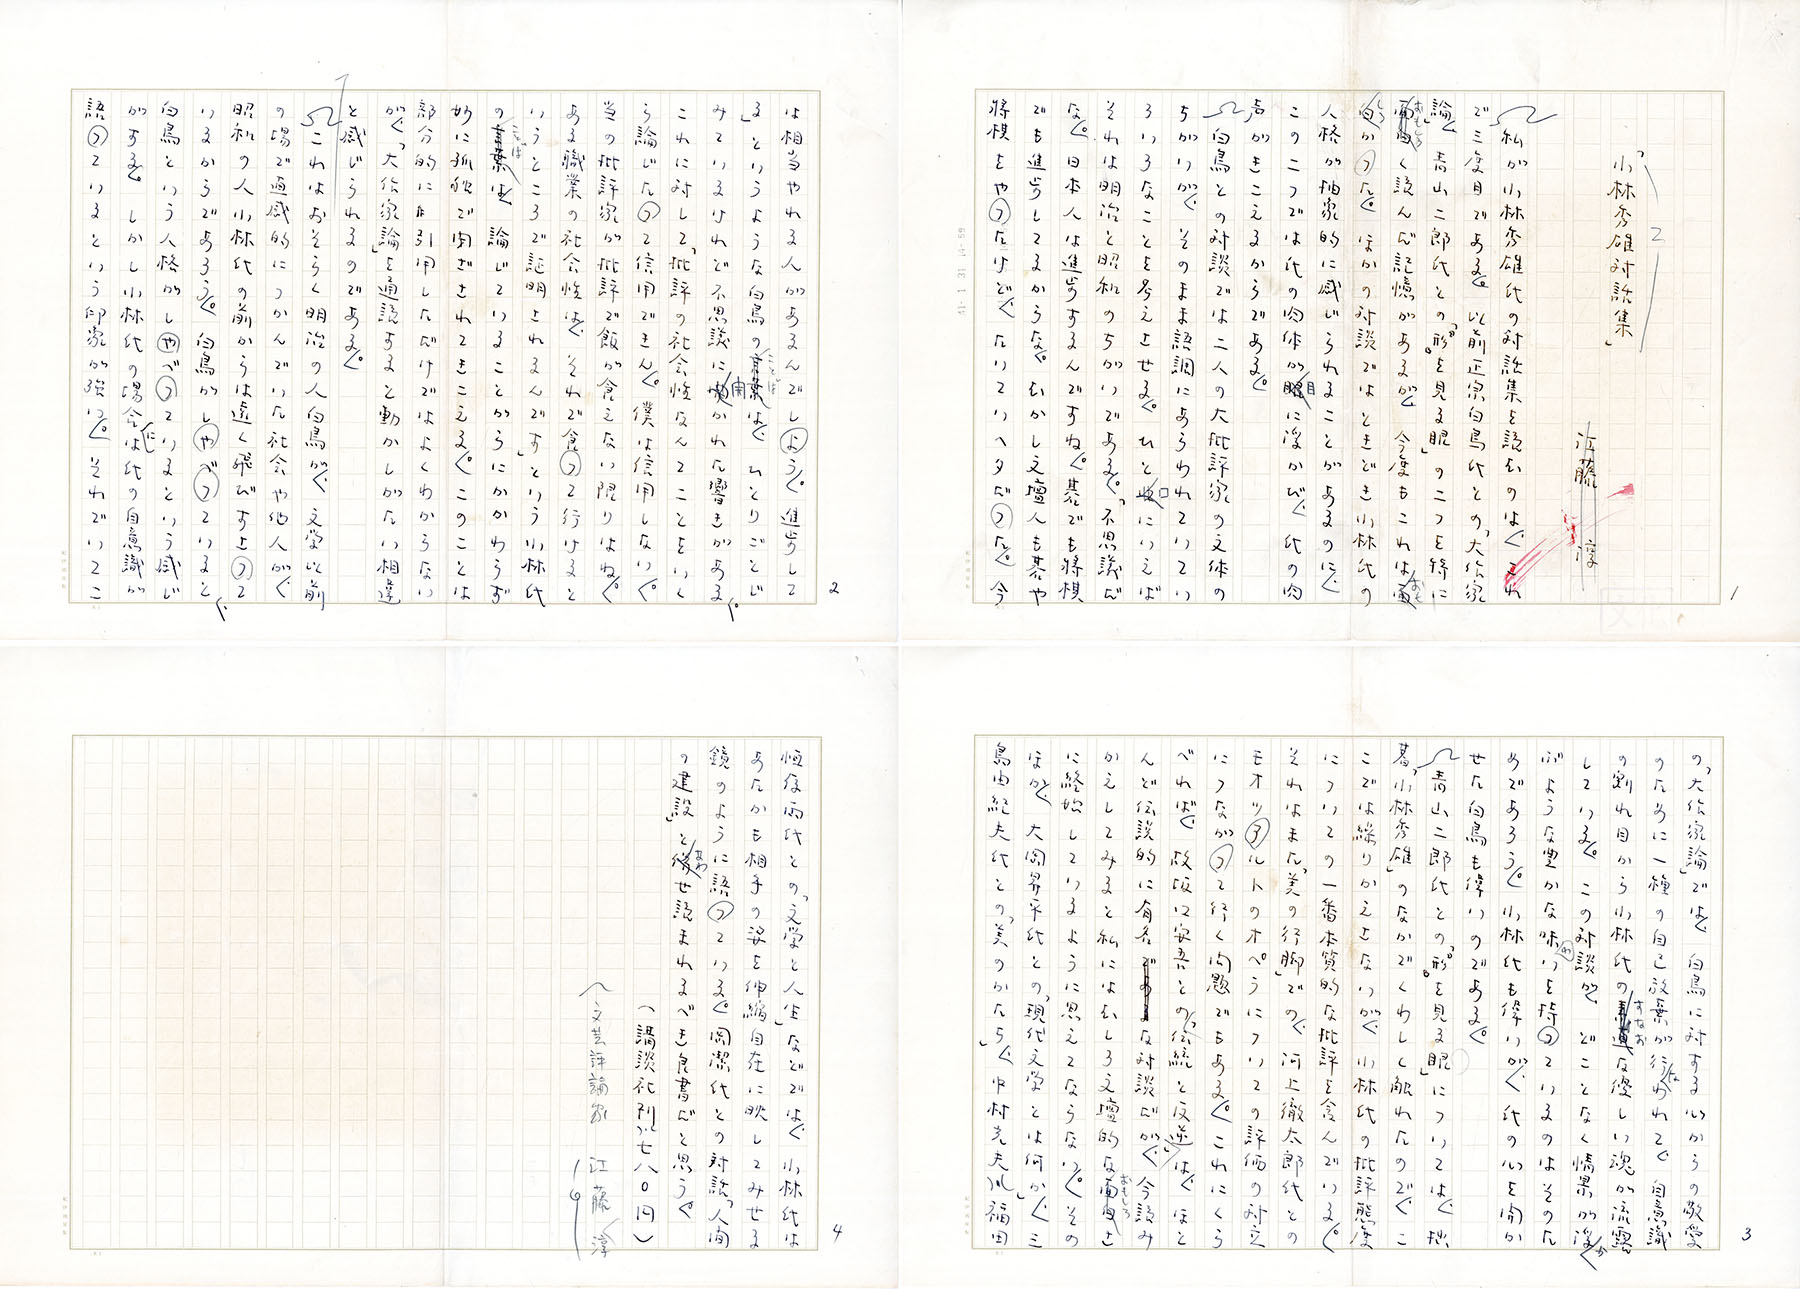 「小林秀雄対話集」
江藤 淳
私が小林秀雄氏の対話集を読むのは、これ
で三度目である。以前正宗白鳥氏との「大作家
論」、青山二郎氏との「『形』を見る眼」の二つを特に
面白く読んだ記憶があるが、今度もこれは面
白かった。ほかの対談ではときどき小林氏の
人格が抽象的に感じられることがあるのに、
この二つでは氏の肉体が眼に浮かび、氏の肉
声がきこえるからである。
白鳥との対談では二人の大批評家の文体の
ちがいが、そのまま語調にあらわれていてい
ろいろなことを考えさせる。ひと口にいえば
それは明治と昭和のちがいである。「不思議だ
な。日本人は進歩するんですね。碁でも将棋
でも進歩してるからな。むかし文壇人も碁や
将棋をやったけど、たいていヘタだった。今
1
は相当やれる人があるんでしょう。進歩して
る」というような白鳥の言葉は、ひとりごとじ
みているけれど不思議に開かれた響きがある。
これに対して、「批評の社会性なんてことをいく
ら論じたって信用できん。僕は信用しない。
当の批評家が批評で飯が食えない限りはね。
ある職業の社会性は、それで食って行けると
いうところで証明されるんです」という小林氏
の言葉は、論じていることがらにかかわらず
妙に孤独で閉ざされてきこえる。このことは
部分的に引用しただけではよくわからない
が、「大作家論」を通読すると動かしがたい相違
と感じられるのである。
これはおそらく明治の人白鳥が、文学以前
の場で直感的につかんでいた社会や他人が、
昭和の人小林氏の前からは遠く飛びすさって
いるからであろう。白鳥がしゃべっていると、
白鳥という人格がしゃべっているという感じ
がする。しかし小林氏の場合には氏の自意識が
語っているという印象が強い。それでいてこ
2
の「大作家論」では、白鳥に対する心からの敬愛
のために一種の自己放棄が行なわれて、自意識
の割れ目から小林氏の素直な優しい魂が流露
している。この対談が、どことなく情景が浮か
ぶような豊かな味わいを持っているのはそのた
めであろう。小林氏も偉いが、氏の心を開か
せた白鳥も偉いのである。
青山二郎氏との「『形』を見る眼」については、拙
著「小林秀雄」のなかでくわしく触れたので、こ
こでは繰りかえさないが、小林氏の批評態度
についての一番本質的な批評を含んでいる。
それはまた、「美の行脚」での、河上徹太郎氏との
モオツァルトのオペラについての評価の対立
につながって行く問題でもある。これにくら
べれば、故坂口安吾との「伝統と反逆」は、ほと
んど伝説的に有名な対談だが、今読み
かえしてみると私にはむしろ文壇的な面白さ
に終始しているように思えてならない。その
ほか、大岡昇平氏との「現代文学とは何か」、三
島由紀夫氏との「美のかたち」、中村光夫、福田
3
恒存両氏との「文学と人生」などでは、小林氏は
あたかも相手の姿を伸縮自在に映してみせる
鏡のように語っている。岡潔氏との対話「人間
の建設」と併せ読まれるべき良書だと思う。
(講談社刊、七八〇円)
〈文芸評論家 江藤 淳〉
4